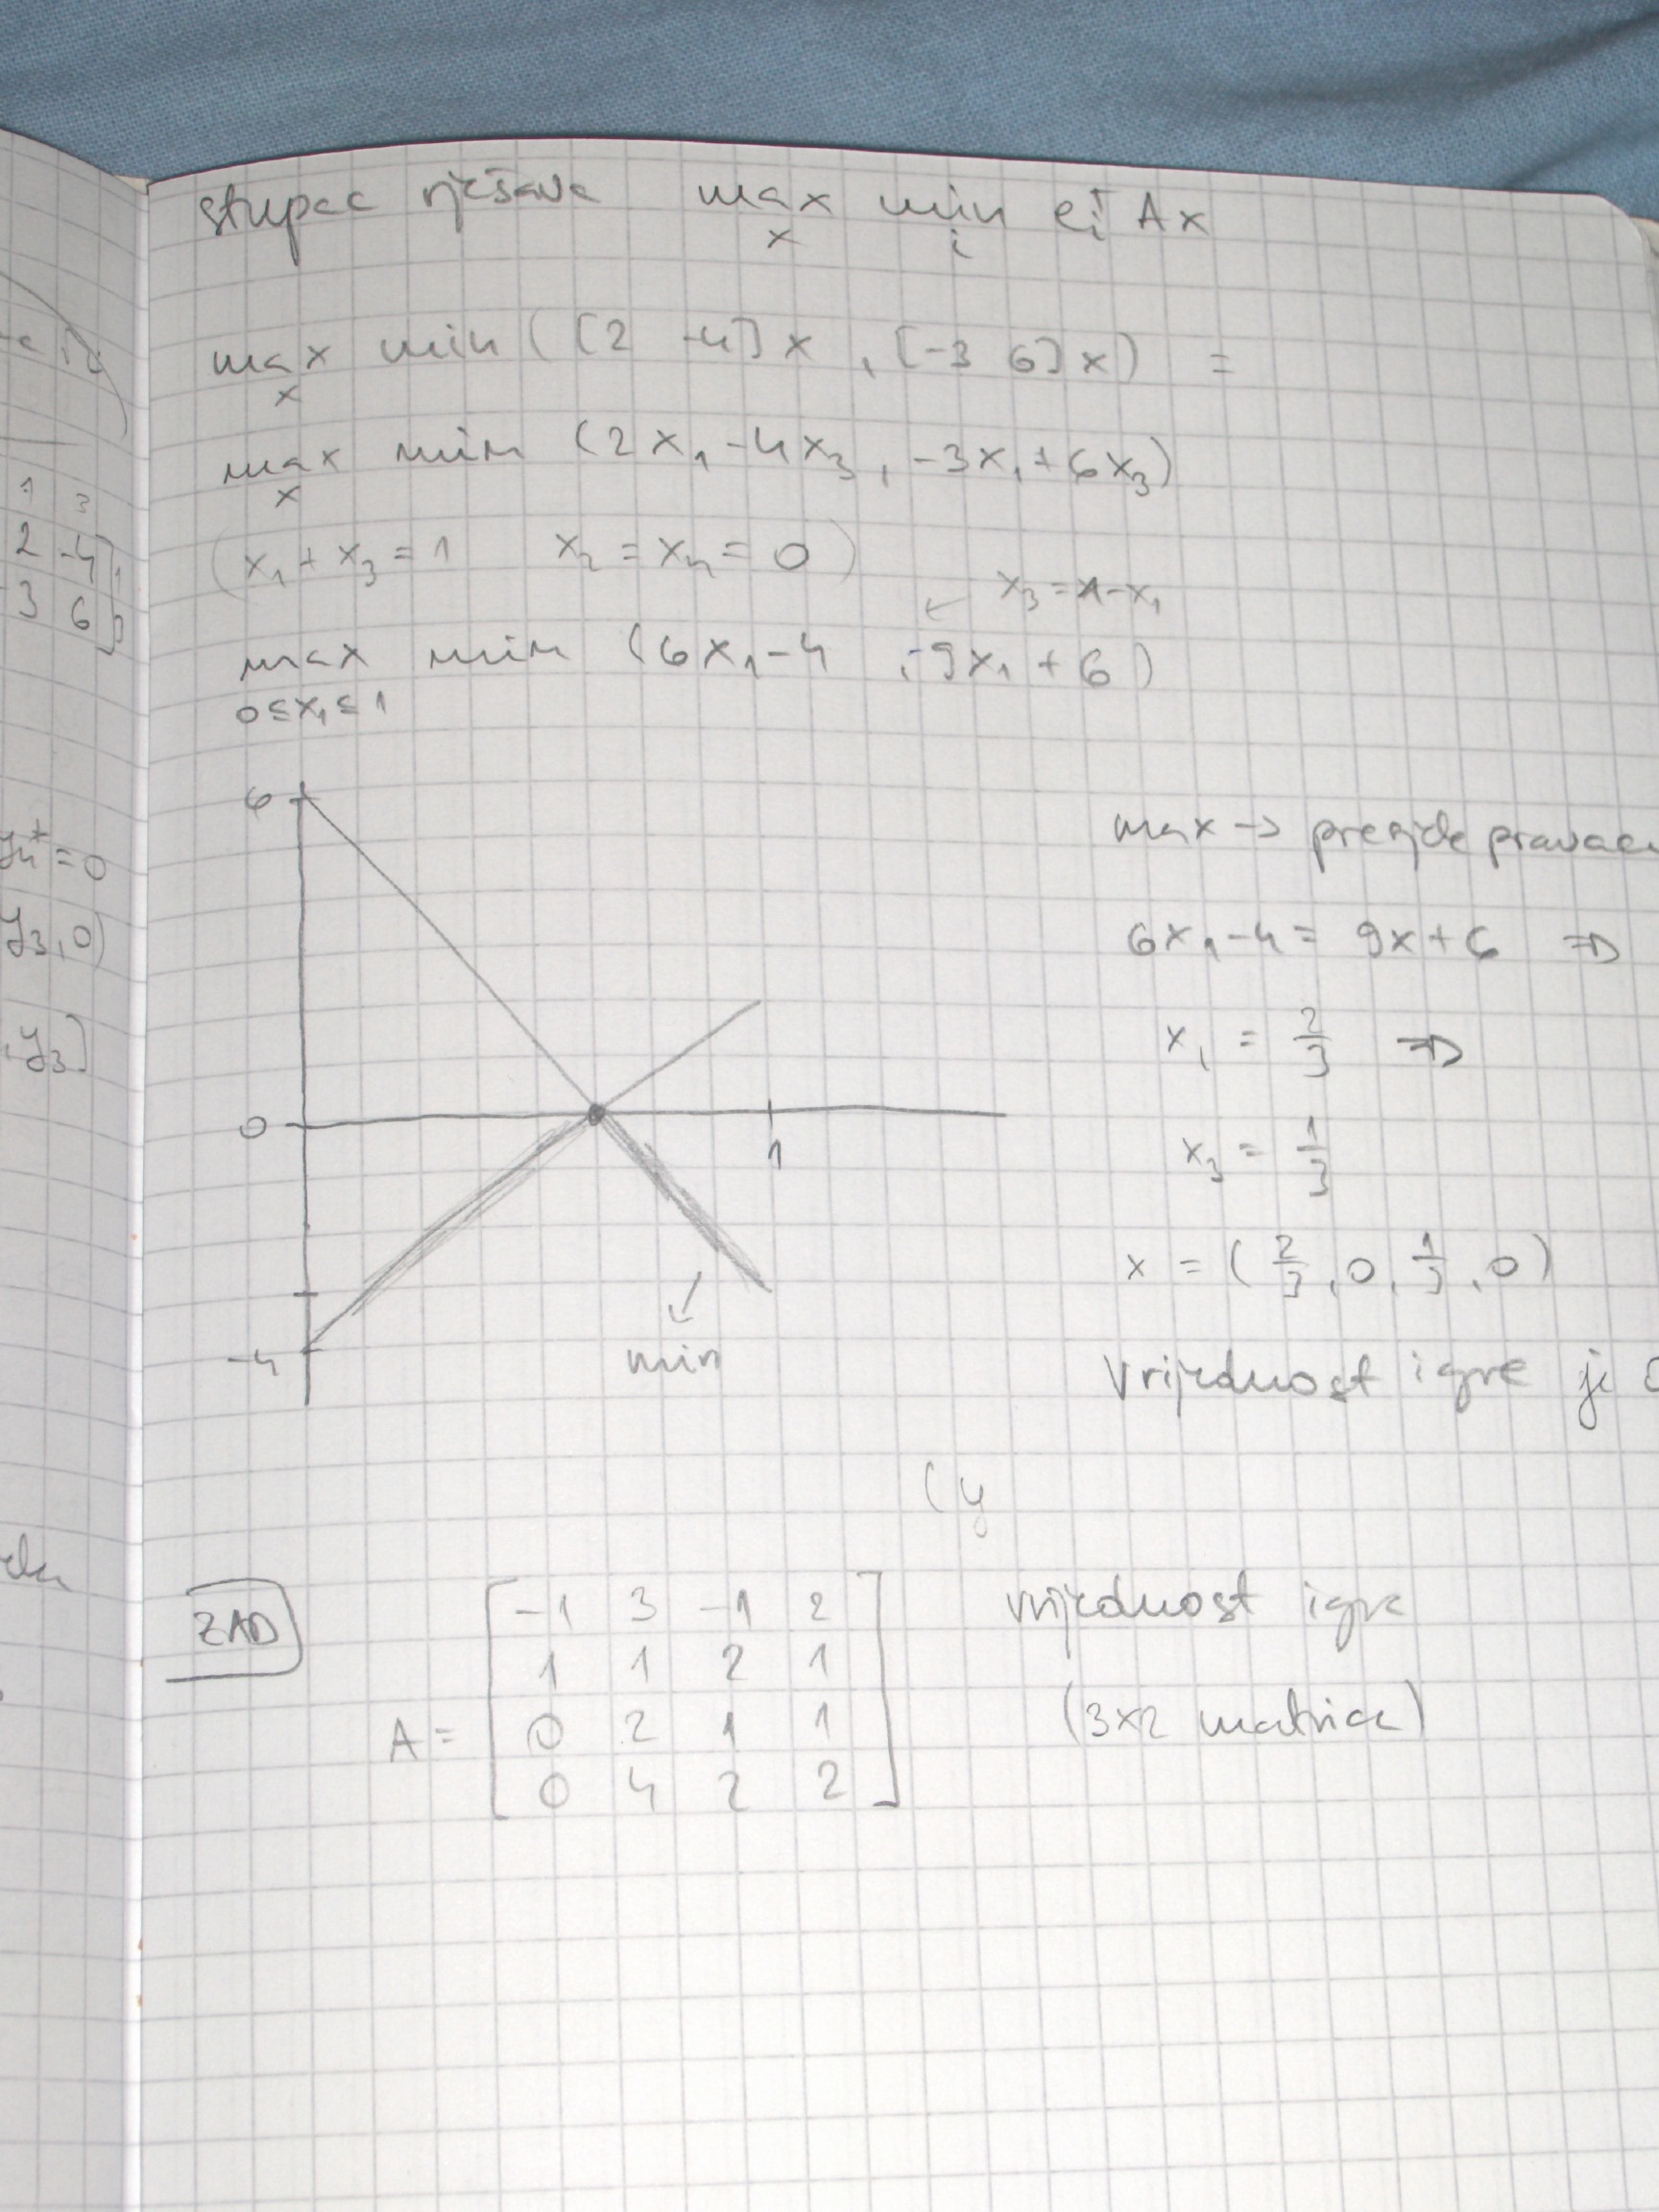 stupac rješava max min eᵢᵀ Ax
x i
max min ([2 -4]x , [-3 6]x) =
x
max min (2x₁-4x₃ , -3x₁+6x₃)
x
(x₁+x₃=1 x₂=x₄=0)
← x₃=1-x₁
max min (6x₁-4 , -9x₁+6)
0≤x₁≤1
6
0
-4
1
min
max → presjek
6x₁-4= 9x+6 ⇒
x₁ = 2/3 ⇒
x₃ = 1/3
x = (2/3, 0, 1/3, 0)
Vrijednost igre je
(y
ZAD
A = [ -1 3 -1 2
1 1 2 1
0 2 1 1
0 4 2 2 ]
vrijednost igre
(3x2 matrica)
1 3
2 -4
3 6
y₄* = 0
y₃, 0)
, y₃]